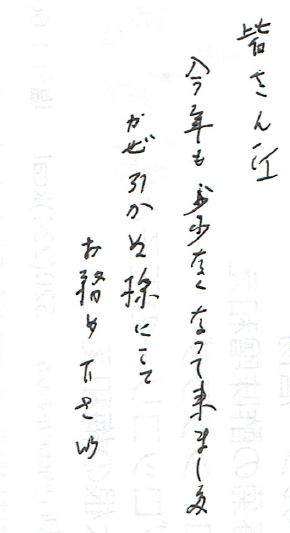 皆さん江
今年も少なくなって来ました
かぜ引かぬ様にして
お務め下さい